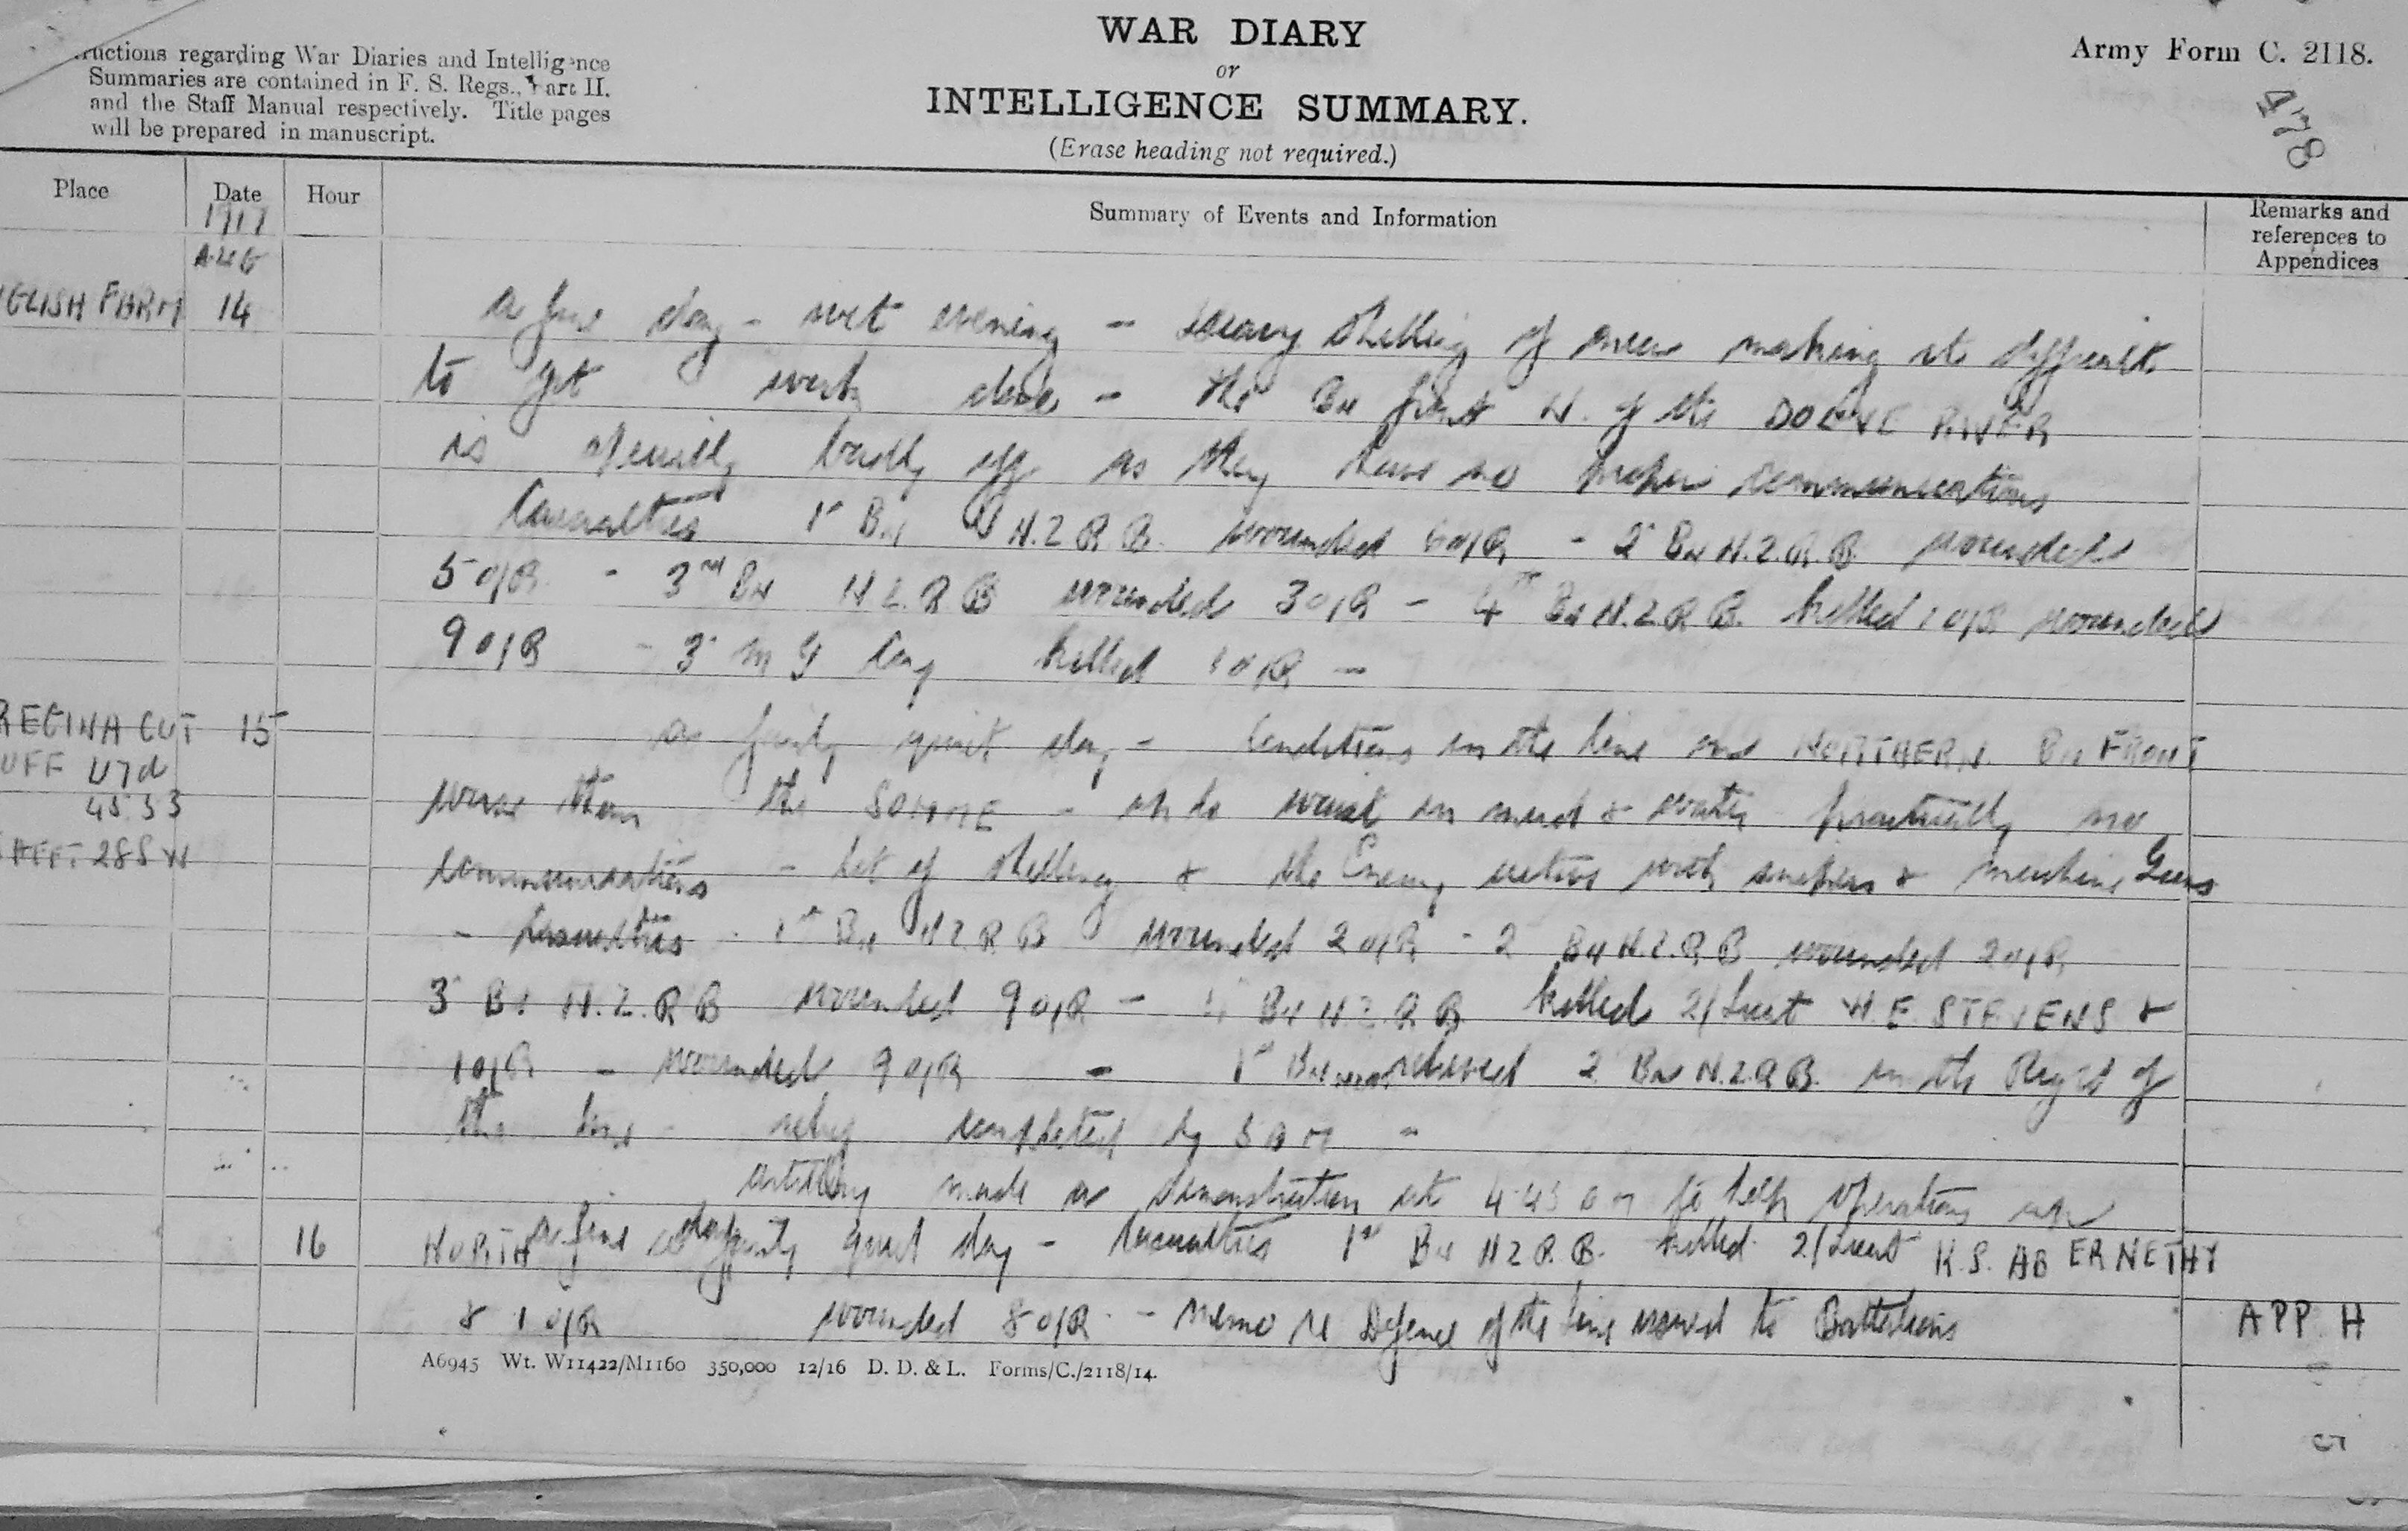 WAR DIARY
or
INTELLIGENCE SUMMARY.
(Erase heading not required.)
Army Form C. 2118.
478
ructions regarding War Diaries and Intelligence
Summaries are contained in F. S. Regs., Part II.
and the Staff Manual respectively. Title pages
will be prepared in manuscript.
Place
Date
Hour
Summary of Events and Information
Remarks and
references to
Appendices
1917
AUG
GLISH FARM 14
a fine day - wet evening - Heavy shelling of area making it difficult
to get work done - the Bn front N. of the DOUVE RIVER
is specially badly off as they have no proper communications
Casualties 1st Bn N.Z.R.B. wounded 6 O/R - 2 Bn N.Z.R.B. wounded
5 O/R - 3rd Bn N.Z.R.B wounded 3 O/R - 4th Bn N.Z.R.B. killed 1 O/R wounded
9 O/R - 3 M G Coy killed 1 O/R -
REGINA CUT 15
a fairly quiet day - Conditions in the line NORTHERN Bn FRONT
worse than the SOMME - up to waist in mud & water practically no
communications - lot of shelling & the Enemy active with snipers & machine Guns
UFF U7d
45.33
HEET 28SW
- Casualties - 1st Bn N.Z.R.B wounded 2 O/R - 2 Bn N.Z.R.B wounded 2 O/R
3 Bn N.Z.R.B wounded 9 O/R - 4 Bn N.Z.R.B killed 2/Lieut H.E. STEVENS &
1 O/R - wounded 9 O/R - 1st Bn relieved 2 Bn N.Z.R.B. in the Right of
the line - relief completed by 5 AM -
artillery made a demonstration at 4.45 am to help operations up
16 NORTH a fine day fairly quiet day - Casualties 1st Bn N.Z.R.B. killed 2/Lieut K.S. ABERNETHY
& 1 O/R wounded 8 O/R - Memo re Defence of the line issued to Battalions
APP H
A6945 Wt. W11422/M1160 350,000 12/16 D. D. & L. Forms/C./2118/14.